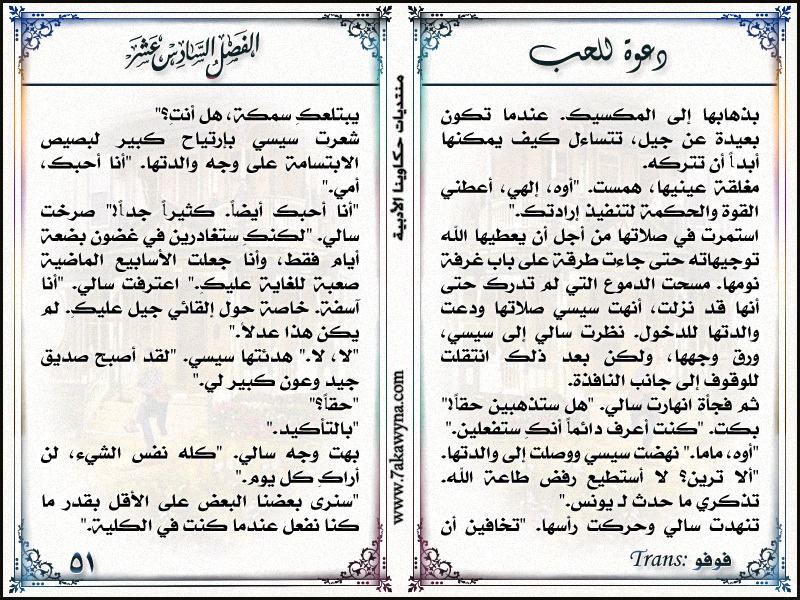 دعوة للحب
بذهابها إلى المكسيك. عندما تكون
بعيدة عن جيل، تتساءل كيف يمكنها
أبداً أن تتركه.
مغلقة عينيها، همست. "أوه، إلهي، أعطني
القوة والحكمة لتنفيذ إرادتك."
استمرت في صلاتها من أجل أن يعطيها الله
توجيهاته حتى جاءت طرقة على باب غرفة
نومها. مسحت الدموع التي لم تدرك حتى
أنها قد نزلت، أنهت سيسي صلاتها ودعت
والدتها للدخول. نظرت سالي إلى سيسي،
ورق وجهها، ولكن بعد ذلك انتقلت
للوقوف إلى جانب النافذة.
ثم فجأة انهارت سالي. "هل ستذهبين حقاً!"
بكت. "كنت أعرف دائماً أنكِ ستفعلين."
"أوه، ماما." نهضت سيسي ووصلت إلى والدتها.
"ألا ترين؟ لا أستطيع رفض طاعة الله.
تذكري ما حدث لـ يونس."
تنهدت سالي وحركت رأسها. "تخافين أن
Trans: فوفو
منتديات حكاوينا الأدبية
www.7akawyna.com
الفصل السادس عشر
يبتلعكِ سمكة، هل أنتِ؟"
شعرت سيسي بإرتياح كبير لبصيص
الابتسامة على وجه والدتها. "أنا أحبك،
أمي."
"أنا أحبك أيضاً. كثيراً جداً!" صرخت
سالي. "لكنكِ ستغادرين في غضون بضعة
أيام فقط، وأنا جعلت الأسابيع الماضية
صعبة للغاية عليكِ." اعترفت سالي. "أنا
آسفة. خاصة حول إلقائي جيل عليكِ. لم
يكن هذا عدلاً."
"لا، لا." هدئتها سيسي. "لقد أصبح صديق
جيد وعون كبير لي."
"حقاً؟"
"بالتأكيد."
بهت وجه سالي. "كله نفس الشيء، لن
أراكِ كل يوم."
"سنرى بعضنا البعض على الأقل بقدر ما
كنا نفعل عندما كنت في الكلية."
٥١